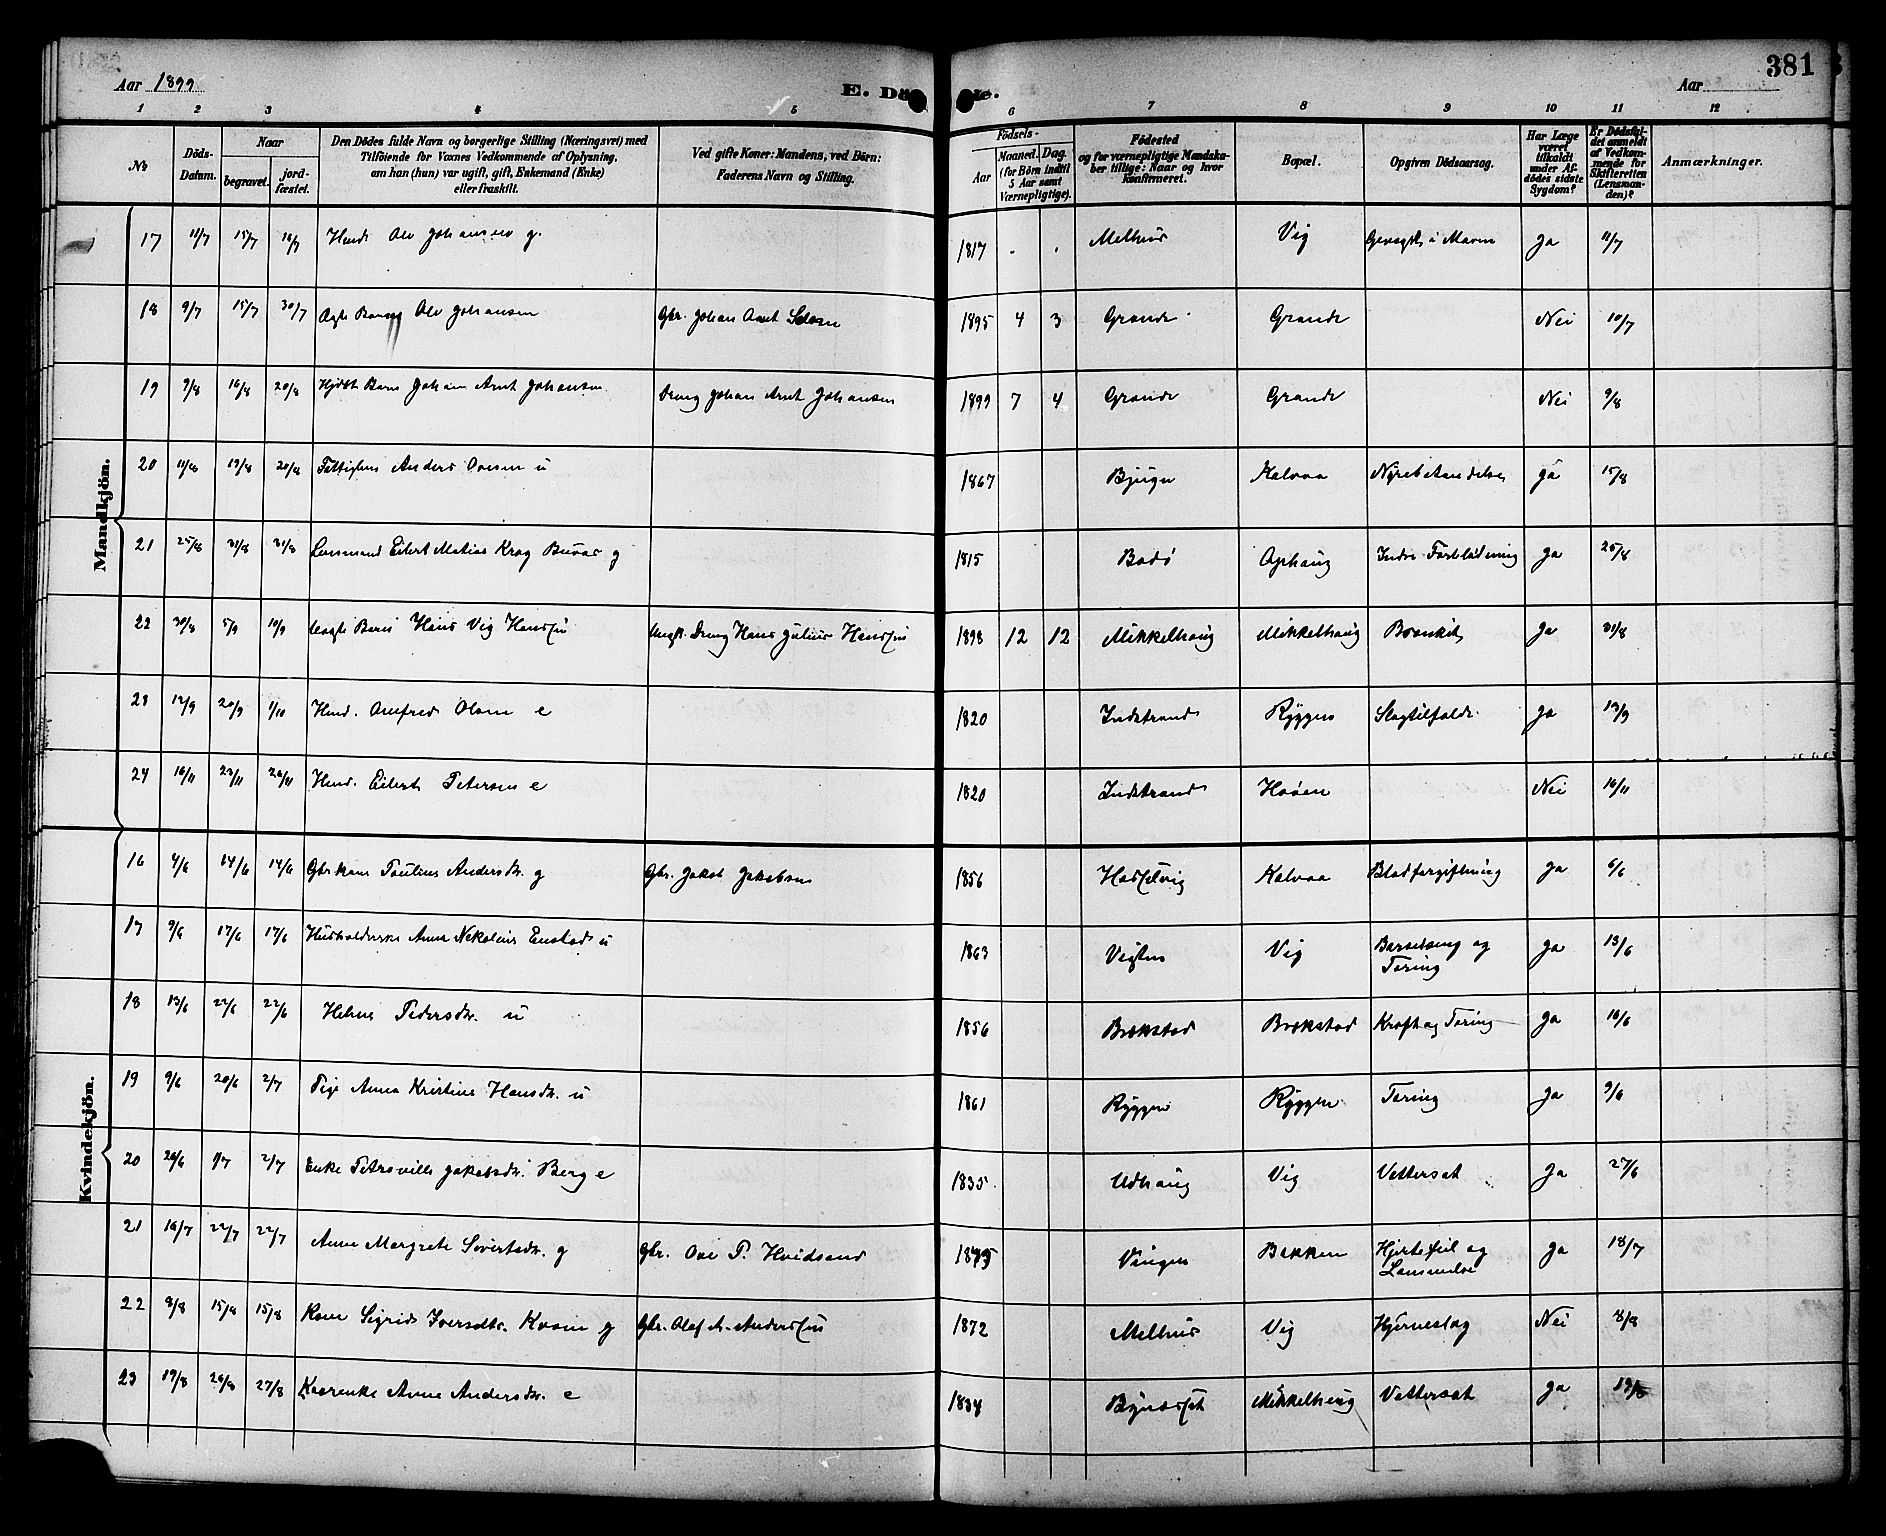 Aar 1899
E. Dö
e.
381
Aar
1 2 3 4 5 6 7 8 9 10 11 12
No
Döds-Datum.
Naar
begravet.
jord-fæstet.
Den Dödes fulde Navn og borgerlige Stilling (Næringsvei) med Tilföiende for Voxnes Vedkommende af Oplysning, om han (hun) var ugift, gift, Enkemand (Enke) eller fraskilt.
Ved gifte Koner: Mandens, ved Börn: Faderens Navn og Stilling.
Födsels-
Aar
Maaned. Dag.
(for Börn indtil 5 Aar samt Værnepligtige).
Födested og for værnepligtige Mandskaber tillige: Naar og hvor konfirmeret.
Bopæl.
Opgiven Dödsaarsag.
Har Læge været tilkaldt under Afdödes sidste Sygdom?
Er Dödsfaldet anmeldt af Vedkommende for Skifteretten (Lensmanden)?
Anmærkninger.
Mandkjön.
17 11/7 15/7 16/7 Ole Johansen g. 1817 Melhus Vig Ja 11/7
18 9/7 15/7 30/7 Ole Johansen Gbr. Johan Arnt 1895 4 3 Grande Grande Nei 10/7
19 9/8 16/8 20/8 Barn Johan Arnt Johansen Dreng Johan Arnt Johansen 1899 7 4 Grande Grande Nei 9/8
20 11/8 19/8 20/8 Anders Ovesen u 1867 Bjugn Kalvaa Nyrebetændelse Ja 15/8
21 25/8 31/8 31/8 Lensmand Eilert Matias Krog Buvas g 1815 Bodø Ophaug Indre Forblødning Ja 25/8
22 30/8 5/9 10/9 Uægte Barn Hans Vig Hansen Ungk. Dreng Hans Julius Hansen 1898 12 12 Mikkelhaug Mikkelhaug Bronkit Ja 31/8
23 12/9 20/9 1/10 Anefred Olsen e 1820 Indstrand Ryggen Slagtilfælde Ja 13/9
24 16/11 23/11 26/11 Eilert Petersen e 1820 Indstrand Hoøen Nei 16/11
Kvindekjön.
16 4/6 14/6 14/6 Gbrkone Pauline Andersdtr. g Gbr. Jakob Jakobsen 1856 Hasselvig Kalvaa Blodforgiftning Ja 6/6
17 9/6 17/6 17/6 Husholderske Anna Nikoline Enstad u 1863 Vigten Vig Barselseng og Tæring Ja 13/6
18 13/6 22/6 22/6 Helene Pedersdtr. u 1856 Brekstad Brekstad Kræft og Tæring Ja 16/6
19 9/6 20/6 2/7 Pige Anna Kristine Hansdtr. u 1861 Ryggen Ryggen Tæring Ja 9/6
20 26/6 1/7 2/7 Enke Petroville Jakobsdtr. Berg e 1835 Udhaug Vig Vattersot Ja 27/6
21 16/7 22/7 22/7 Anne Margrete Sivertsdtr. g Gbr. Ove P. Hvidsand Vingen Bakken Hjertefeil og Ja 18/7
22 8/8 15/8 15/8 Kone Sigrid Iversdtr. Kvam g Gbr. Olaf A. Andersen 1872 Melhus Vig Hjerneslag Nei 8/8
23 19/8 26/8 27/8 Kaarenke Anne Andersdtr. e 1834 Bynesset Mikkelhaug Vattersot Ja 19/8